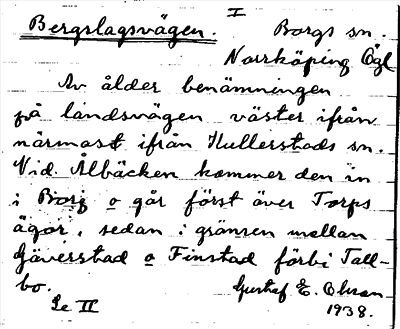 I
Bergslagsvägen. Borgs sn.
Norrköping Ögl
Av ålder benämningen
på landsvägen väster ifrån
närmast ifrån Kullerstads sn.
Vid Ålbäcken kommer den in
i Borg o går först över Torps
ägor, sedan i gränsen mellan
Gäverstad o Finstad förbi Tall-
bo. Gustaf E. Olsson
Se II 1938.